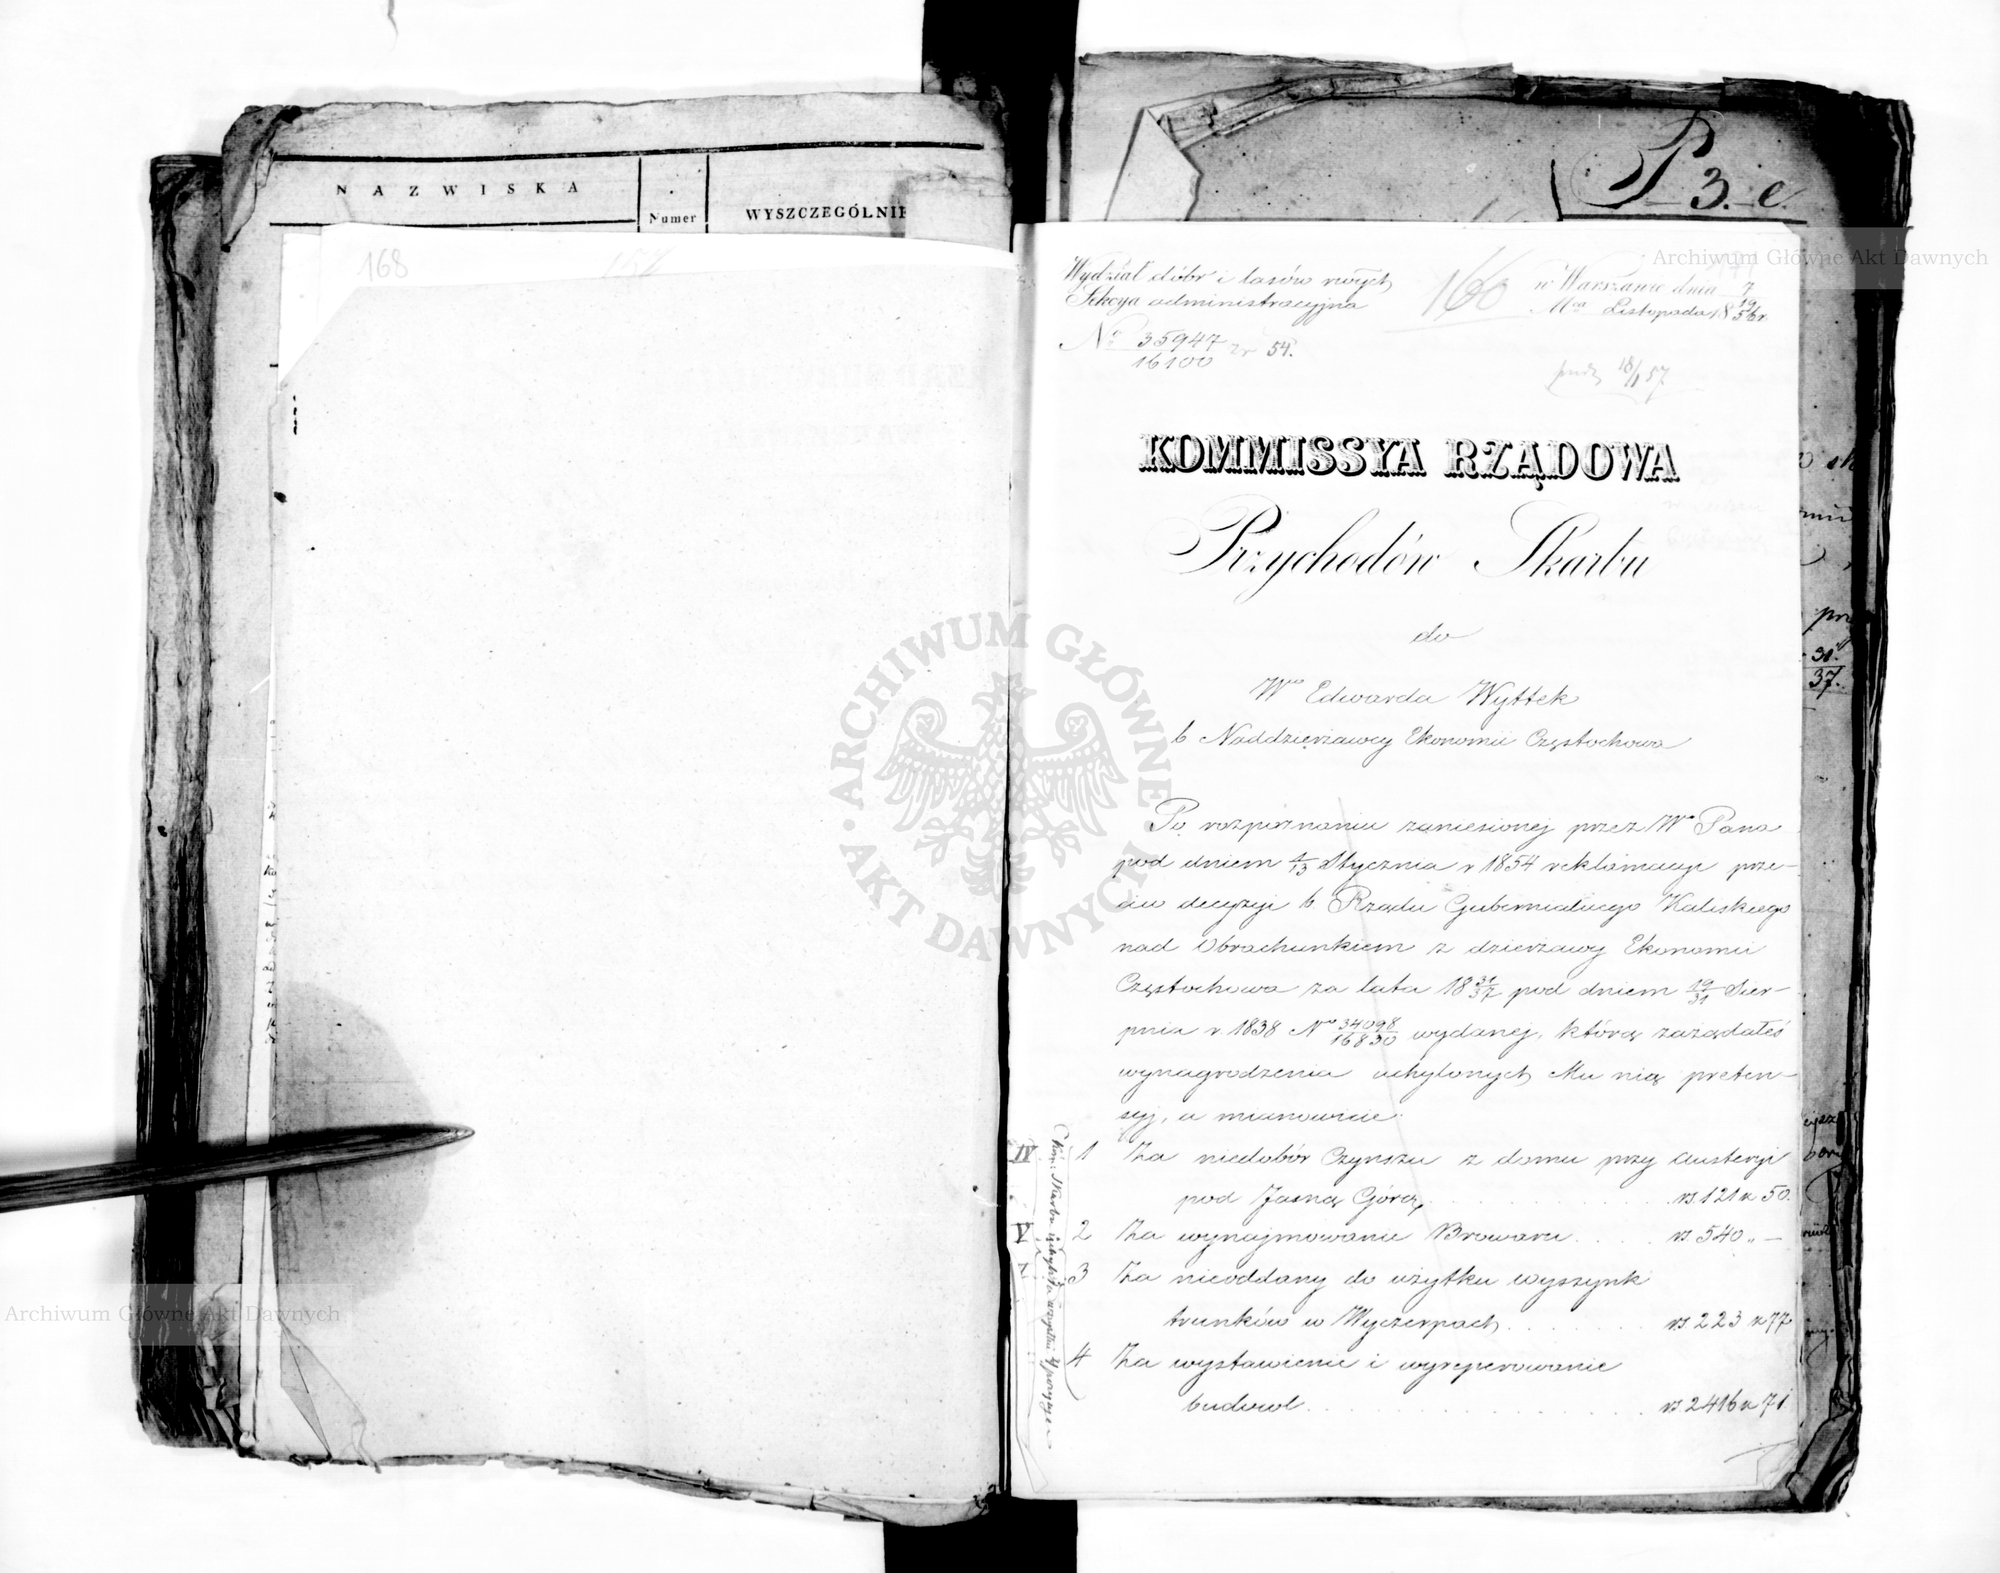 NAZWISKA
Numer
WYSZCZEGÓLNIE
168
P. 3. e
Archiwum Główne Akt Dawnych
Wydział dóbr i lasów rządych
Sekcya administracyjna
No 35947/16100 zr 54.
160
w Warszawie dnia 7/19
Mca Listopada 1856 r.
18/1 57
KOMMISSYA RZĄDOWA
Przychodów Skarbu
do
Wo Edwarda Wyttek
b Naddzierżawcy Ekonomii Częstochowa
Po rozpoznaniu zaniesionej przez Wo Pana
pod dniem 1/13 Stycznia r 1854 reklamacyi prze-
ciw decyzyi b. Rządu Gubernialnego Kaliskiego
nad Obrachunkiem z dzierżawy Ekonomii
Częstochowa za lata 18 31/37 pod dniem 19/31 Sier-
pnia r. 1838 No 34098/16830 wydanej, którą zażądałeś
wynagrodzenia uchylonych Mu nią preten-
syj, a mianowicie:
IV 1 Za niedobór Czynszu z domu przy Austeryi
pod Jasną Górą . . . rs 121 k 50.
V 2 Za wynajmowanie Browaru . . . . rs 540 „ —
3 Za nieoddany do użytku wyszynk
trunków w Wyczerpach . . . rs 223 k 77
4 Za wystawienie i wyreperowanie
budowl . . . rs 2416 k 71
31
37.
ARCHIWUM GŁÓWNE AKT DAWNYCH
Archiwum Główne Akt Dawnych